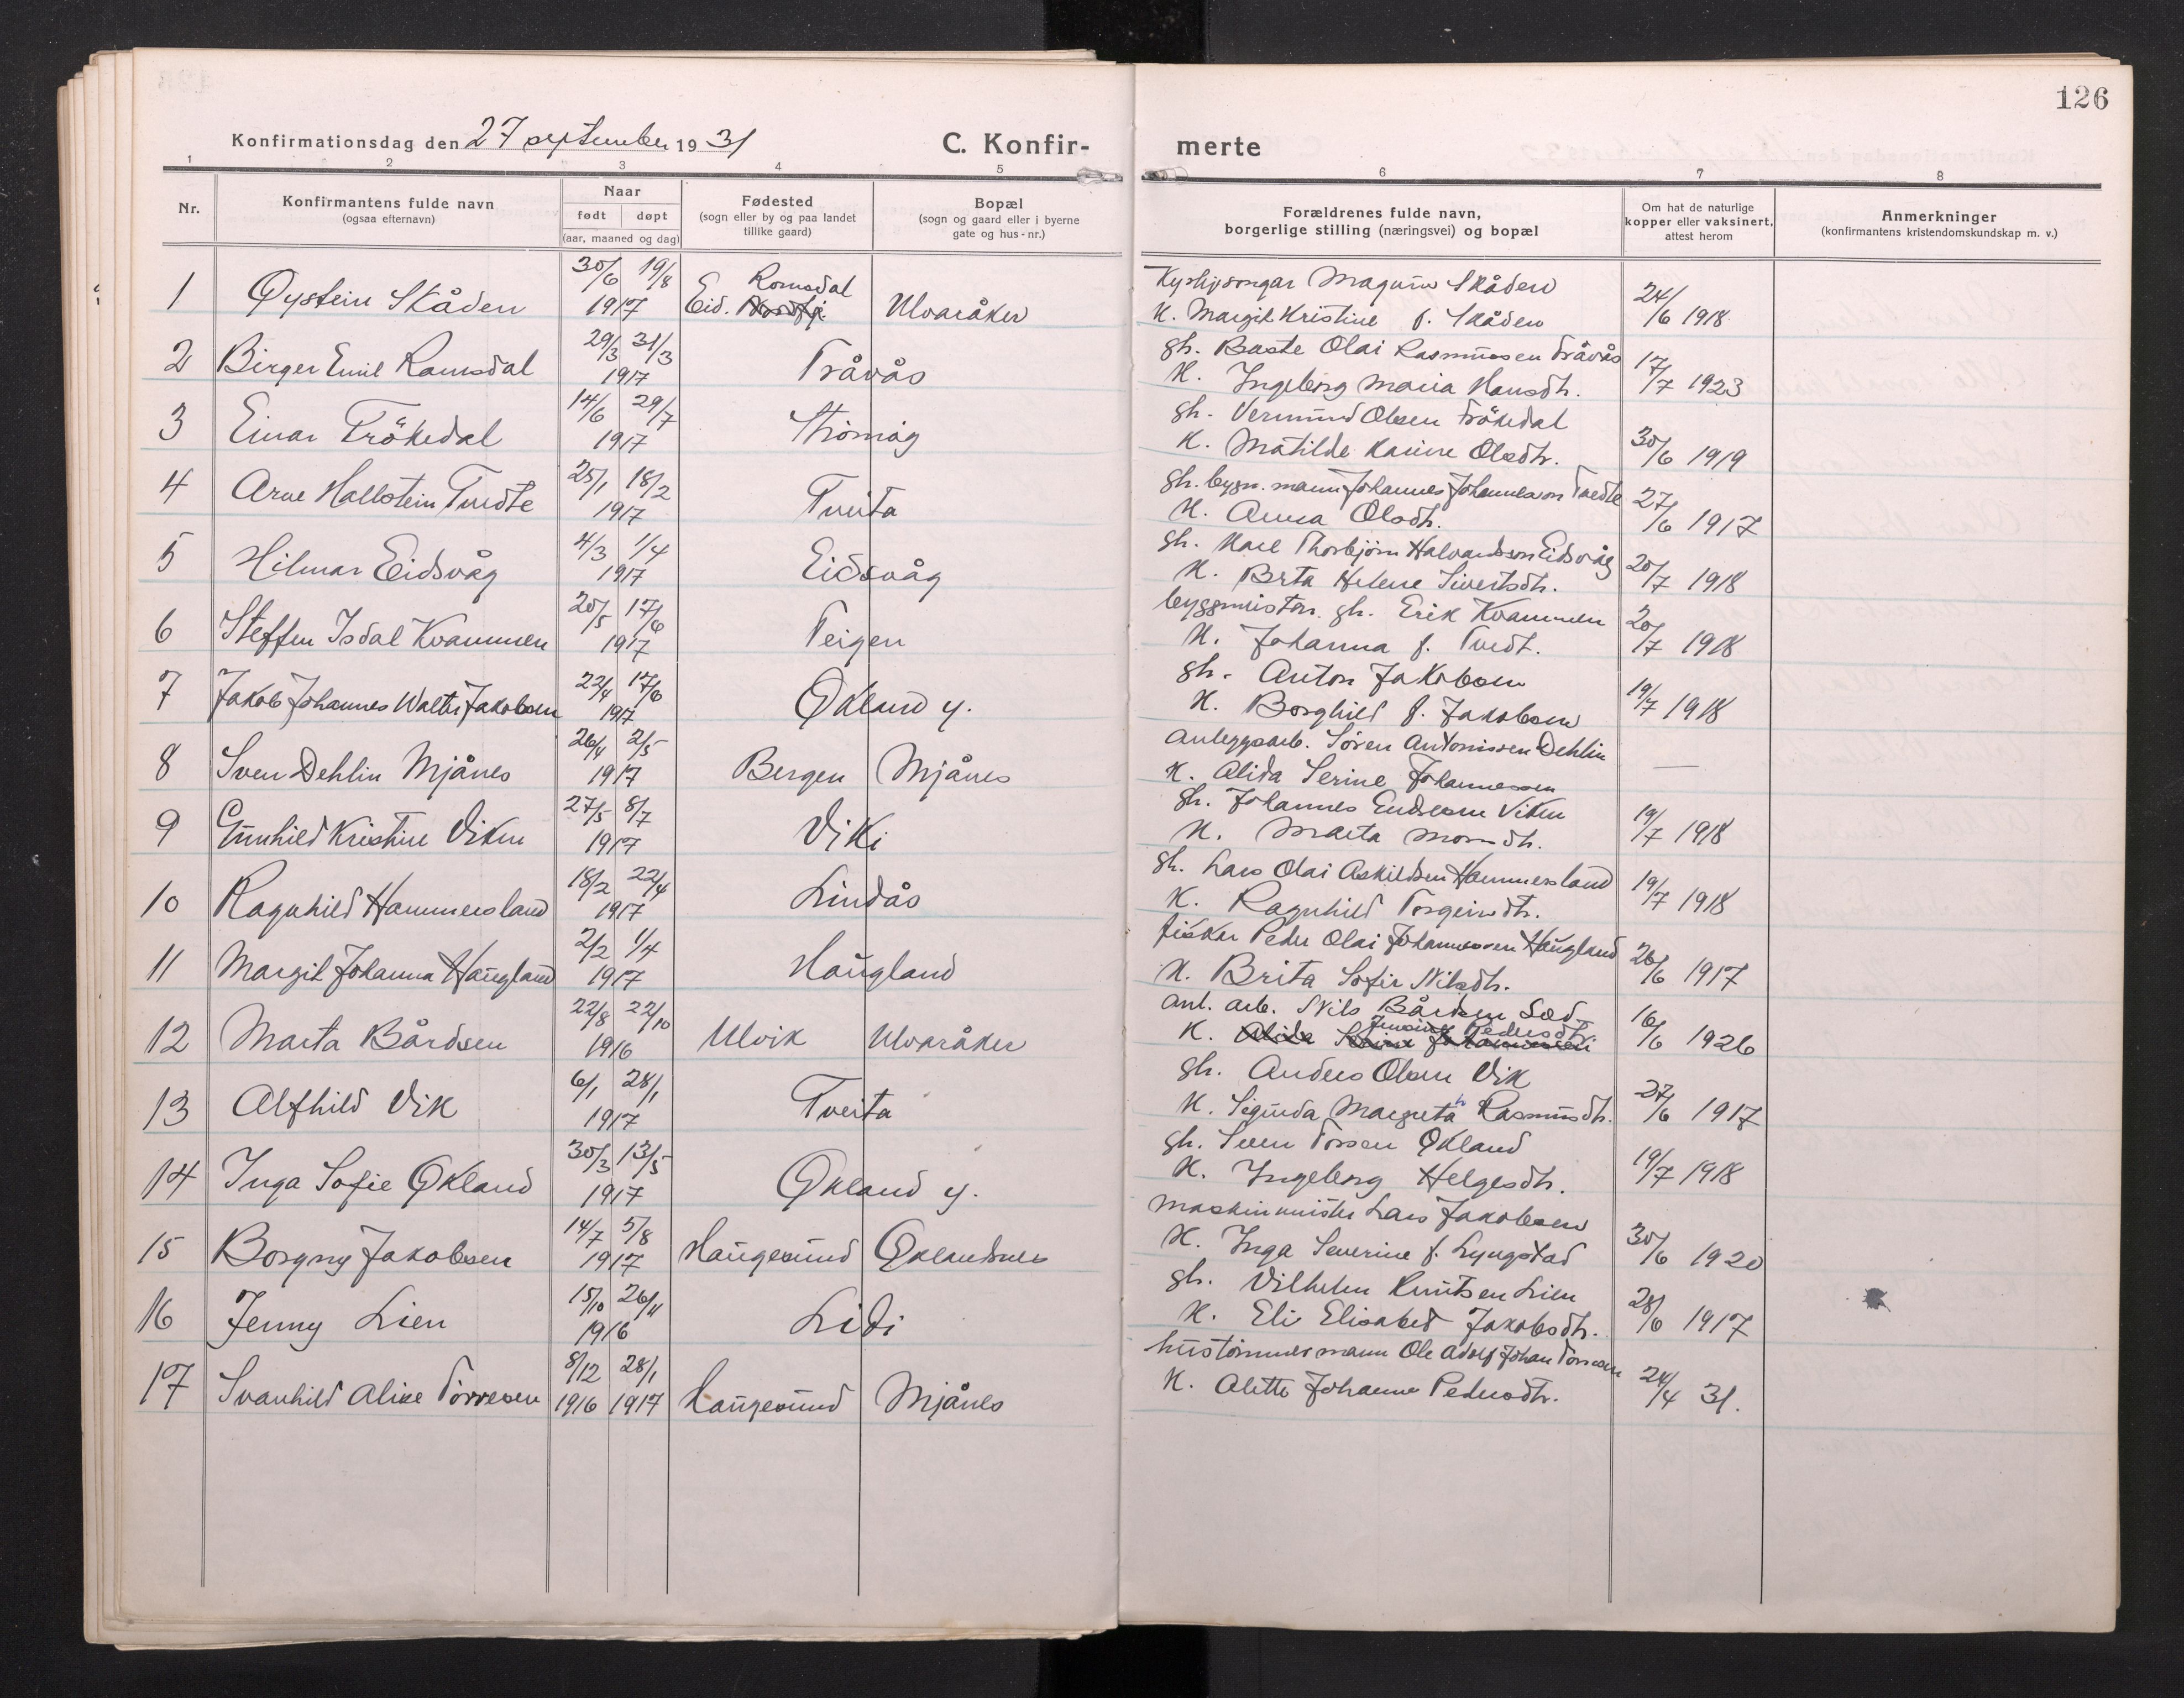 126
Konfirmationsdag den 27 september 1931
C. Konfir-
merte
1 2 3 4 5 6 7 8
Nr.
Konfirmantens fulde navn
(ogsaa efternavn)
Naar
født døpt
(aar, maaned og dag)
Fødested
(sogn eller by og paa landet
tillike gaard)
Bopæl
(sogn og gaard eller i byerne
gate og hus-nr.)
Forældrenes fulde navn,
borgerlige stilling (næringsvei) og bopæl
Om hat de naturlige
kopper eller vaksinert,
attest herom
Anmerkninger
(konfirmantens kristendomskundskap m. v.)
1 Øystein Skåden 30/6 19/8 1917 Eid. Romsdal Ulvaråker
Kyrkjesongar Magnus Skåden
K. Margit Kristine f. Skåden 24/6 1918
2 Birger Emil Ramsdal 29/3 31/3 1917 Tråvås
gh. Baste Olai Rasmussen Tråvås
K. Ingeborg Maria Hansdtr. 17/7 1923
3 Einar Trökedal 14/6 29/7 1917 Strömög
gh. Vermund Olsen Trökedal
K. Matilde Karine Olsdtr. 30/6 1919
4 Arne Hallstein Tvedte 25/1 18/2 1917 Tveita
gh. bygn. mann Johannes Johannesson Tvedte
K. Anna Olsdtr. 27/6 1917
5 Hilmar Eidsvåg 4/3 1/4 1917 Eidsvåg
gh. Karl Thorbjörn Halvardson Eidsvåg
K. Brta Helene Sivertsdtr. 20/7 1918
6 Steffen Isdal Kvammen 20/5 17/6 1917 Teigen
byggmeistar. gh. Erik Kvammen
K. Johanna f. Tvedt. 20/7 1918
7 Jakob Johannes Walter Jakobsen 22/4 17/6 1917 Økland y.
gh. Anton Jakobsen
K. Borghild f. Jakobsen 19/7 1918
8 Sven Dehlin Mjånes 26/4 2/5 1917 Bergen Mjånes
Anleggsarb. Sören Antonissen Dehlin
K. Alida Serine Johannessen —
9 Gunhild Kristine Viken 27/5 8/7 1917 Viki
gh. Johannes Endresen Viken
K. Marta Monsdtr. 19/7 1918
10 Ragnhild Hammersland 18/2 22/4 1917 Lindås
gh. Lars Olai Askildsen Hammersland
K. Ragnhild Torgeirsdtr. 19/7 1918
11 Margit Johanna Haugland 2/2 1/4 1917 Haugland
fiskar Peder Olai Johannessen Haugland
K. Brita Sofie Nilsdtr. 26/6 1917
12 Marta Bårdsen 22/8 22/10 1916 Ulvik Ulvaråker
anl. arb. Nils Bårdsen Sæd
Jensine Pedersdtr.
K. Alida Serine Johannessen 16/6 1926
13 Alfhild Vik 6/1 28/1 1917 Tveita
gh. Anders Olsen Vik
K. Sigurda Margreta Rasmusdtr. 27/6 1917
14 Inga Sofie Økland 30/3 13/5 1917 Økland y.
gh. Sven Torsen Økland
K. Ingeborg Helgesdtr. 19/7 1918
15 Borgny Jakobsen 14/7 5/8 1917 Haugesund Øklandsnes
maskinmeister Lars Jakobsen
K. Inga Severine f. Lyngstad 30/6 1920
16 Jenny Lien 15/10 26/11 1916 Lidi
gh. Vilhelm Knutsen Lien
K. Eli Elisabed Jakobsdtr. 28/6 1917
17 Svanhild Alise Torresen 8/12 1916 28/1 1917 Haugesund Mjånes
hustömmermann Ole Adolf Johan Torresen
K. Alette Johanne Pedersdtr. 24/4 31.